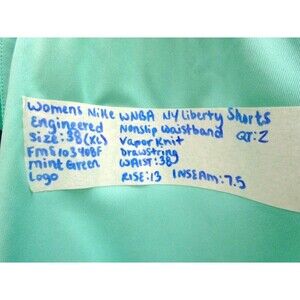 Womens Nike WNBA NY Liberty Shorts
Engineered Nonslip Waistband QT:2
Size:38(XL) Vapor Knit
FM6103408F Drawstring
Mint Green WAIST:38
Logo RISE:13 INSEAM:7.5